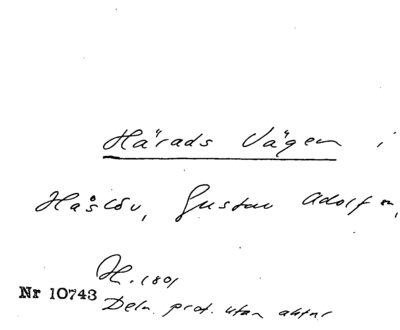 Härads Vägen i
Håslöv, Gustav Adolf m,
H. 1801
Nr 10743
Deln. prot. utan aktnr